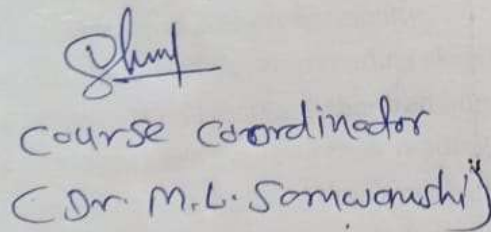 Course Coordinator
(Dr. M.L. Somwanshi)